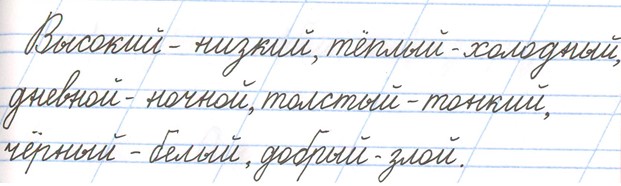 Высокий - низкий, тёплый - холодный,
дневной - ночной, толстый - тонкий,
чёрный - белый, добрый - злой.